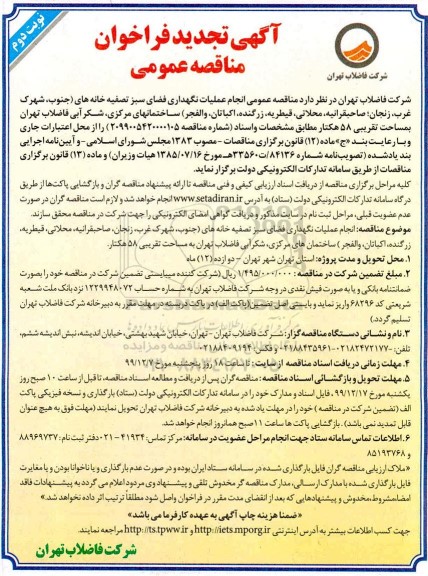 نوبت دوم
آگهی تجدید فراخوان
مناقصه عمومی
شرکت فاضلاب تهران
شرکت فاضلاب تهران در نظر دارد مناقصه عمومی انجام عملیات نگهداری فضای سبز تصفیه خانه های (جنوب، شهرک
غرب، زنجان؛ صاحبقرانیه، محلاتی، قیطریه، زرگنده، اکباتان، والفجر) ساختمانهای مرکزی، شکرآبی فاضلاب تهران
بمساحت تقریبی ۵۸ هکتار مطابق مشخصات واسناد (شماره مناقصه ۲۰۹۹۰۰۵۴۲۰۰۰۰۱۰۵) را از محل اعتبارات جاری
و با رعایت بند «ج» ماده (۱۲) قانون برگزاری مناقصات - مصوب ۱۳۸۳ مجلس شورای اسلامی - و آیین‌نامه اجرایی
بند یادشده (تصویب‌نامه شماره ۸۴۱۳۶/ت۳۳۵۶۰هـ مورخ ۱۳۸۵/۰۷/۱۶ هیات وزیران) و ماده (۱۳) قانون برگزاری
مناقصات از طریق سامانه تدارکات الکترونیکی دولت برگزار نماید.
کلیه مراحل برگزاری مناقصه از دریافت اسناد ارزیابی کیفی و فنی مناقصه تا ارائه پیشنهاد مناقصه گران و بازگشایی پاکت‌ها از طریق
درگاه سامانه تدارکات الکترونیکی دولت (ستاد) به آدرس www.setadiran.ir انجام خواهد شد و لازم است مناقصه گران در صورت
عدم عضویت قبلی، مراحل ثبت نام در سایت مذکور و دریافت گواهی امضای الکترونیکی را جهت شرکت در مناقصه محقق سازند.
موضوع مناقصه: انجام عملیات نگهداری فضای سبز تصفیه خانه های (جنوب، شهرک غرب، زنجان، صاحبقرانیه، محلاتی، قیطریه،
زرگنده، اکباتان، والفجر) ساختمان های مرکزی، شکرآبی فاضلاب تهران به مساحت تقریبی ۵۸ هکتار.
۱. محل تحویل و مدت پروژه: استان تهران شهر تهران - دوازده (۱۲) ماه
۲. مبلغ تضمین شرکت در مناقصه: ۱/۴۹۵/۰۰۰/۰۰۰ ریال (شرکت کننده میبایستی تضمین شرکت در مناقصه خود را بصورت
ضمانتنامه بانکی و یا به صورت فیش نقدی در وجه شرکت فاضلاب تهران به شماره حساب ۱۲۲۹۹۴۸۰۷۲ نزد بانک ملت شعبه
شریعتی کد ۶۸۲۹۶ واریز نماید و بایستی اصل تضمین (پاکت الف) در پاکت دربسته در مهلت مقرر به دبیرخانه شرکت فاضلاب تهران
تسلیم گردد.)
۳. نام و نشانی دستگاه مناقصه گزار: شرکت فاضلاب تهران - تهران، خیابان شهید بهشتی، خیابان اندیشه، نبش اندیشه ششم،
تلفن: ۰۲۱۸۲۴۷۲۱۷۷ - ۰۲۱۸۸۴۳۵۹۶۱ و فکس: ۰۲۱۸۸۴۰۹۱۹۴
۴. مهلت زمانی دریافت اسناد مناقصه از سایت: تا ساعت ۱۸ روز پنجشنبه مورخ ۹۹/۱۲/۷
۵. مهلت تحویل و بازگشائی اسناد مناقصه: مناقصه گران پس از دریافت و مطالعه اسناد مناقصه، تا قبل از ساعت ۱۰ صبح روز
یکشنبه مورخ ۹۹/۱۲/۱۷، فایل اسناد و مدارک خود را در سامانه تدارکات الکترونیکی دولت (ستاد) بارگذاری و نسخه فیزیکی پاکت
الف (تضمین شرکت در مناقصه) خود را در مهلت یاد شده به دبیرخانه شرکت فاضلاب تهران تحویل نمایند (مهلت فوق به هیچ عنوان
قابل تمدید نمی باشد). بازگشایی پاکت ها ساعت ۱۱ صبح همانروز انجام خواهد شد.
۶. اطلاعات تماس سامانه ستاد جهت انجام مراحل عضویت در سامانه: مرکز تماس: ۴۱۹۳۴ - ۰۲۱ دفتر ثبت نام: ۸۸۹۶۹۷۳۷
و ۸۵۱۹۳۷۶۸
«ملاک ارزیابی مناقصه گران فایل بارگذاری شده در سامانه ستاد ایران بوده و در صورت عدم بارگذاری و یا ناخوانا بودن و یا مغایرت
فایل بارگذاری شده با مدارک ارسالی، مدارک مناقصه گر مخدوش تلقی و پیشنهاد وی مردود اعلام می گردد به پیشنهادات فاقد
امضا، مشروط، مخدوش و پیشنهادهایی که بعد از انقضای مدت مقرر در فراخوان واصل شود مطلقاً ترتیب اثر داده نخواهد شد.»
«ضمنا هزینه چاپ آگهی به عهده کارفرما می باشد»
جهت کسب اطلاعات بیشتر به آدرس اینترنتی http://iets.mporg.ir و http://ts.tpww.ir مراجعه نمایند.
شرکت فاضلاب تهران